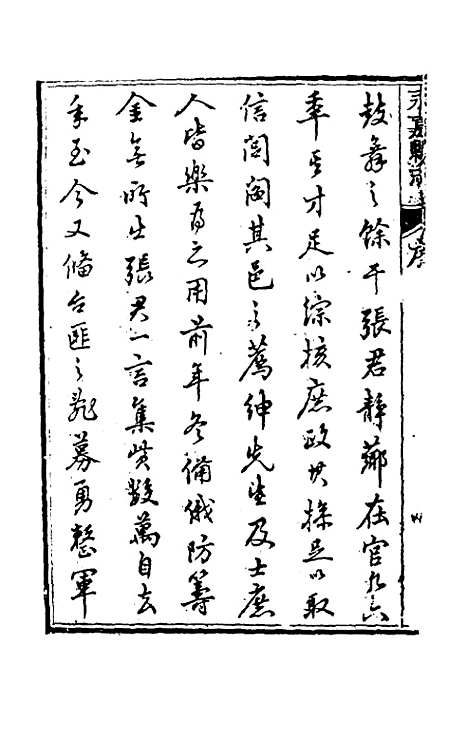 永嘉縣志 序 四
鼓舞之餘干張君靜薌在官九六
年其才足以綜核庶政其操足以取
信閭閻其邑之薦紳先生及士庶
人皆樂為之用前年冬備俄防籌
金無所出張君一言集貲數萬自去
年至今又條台匪之亂募勇整軍